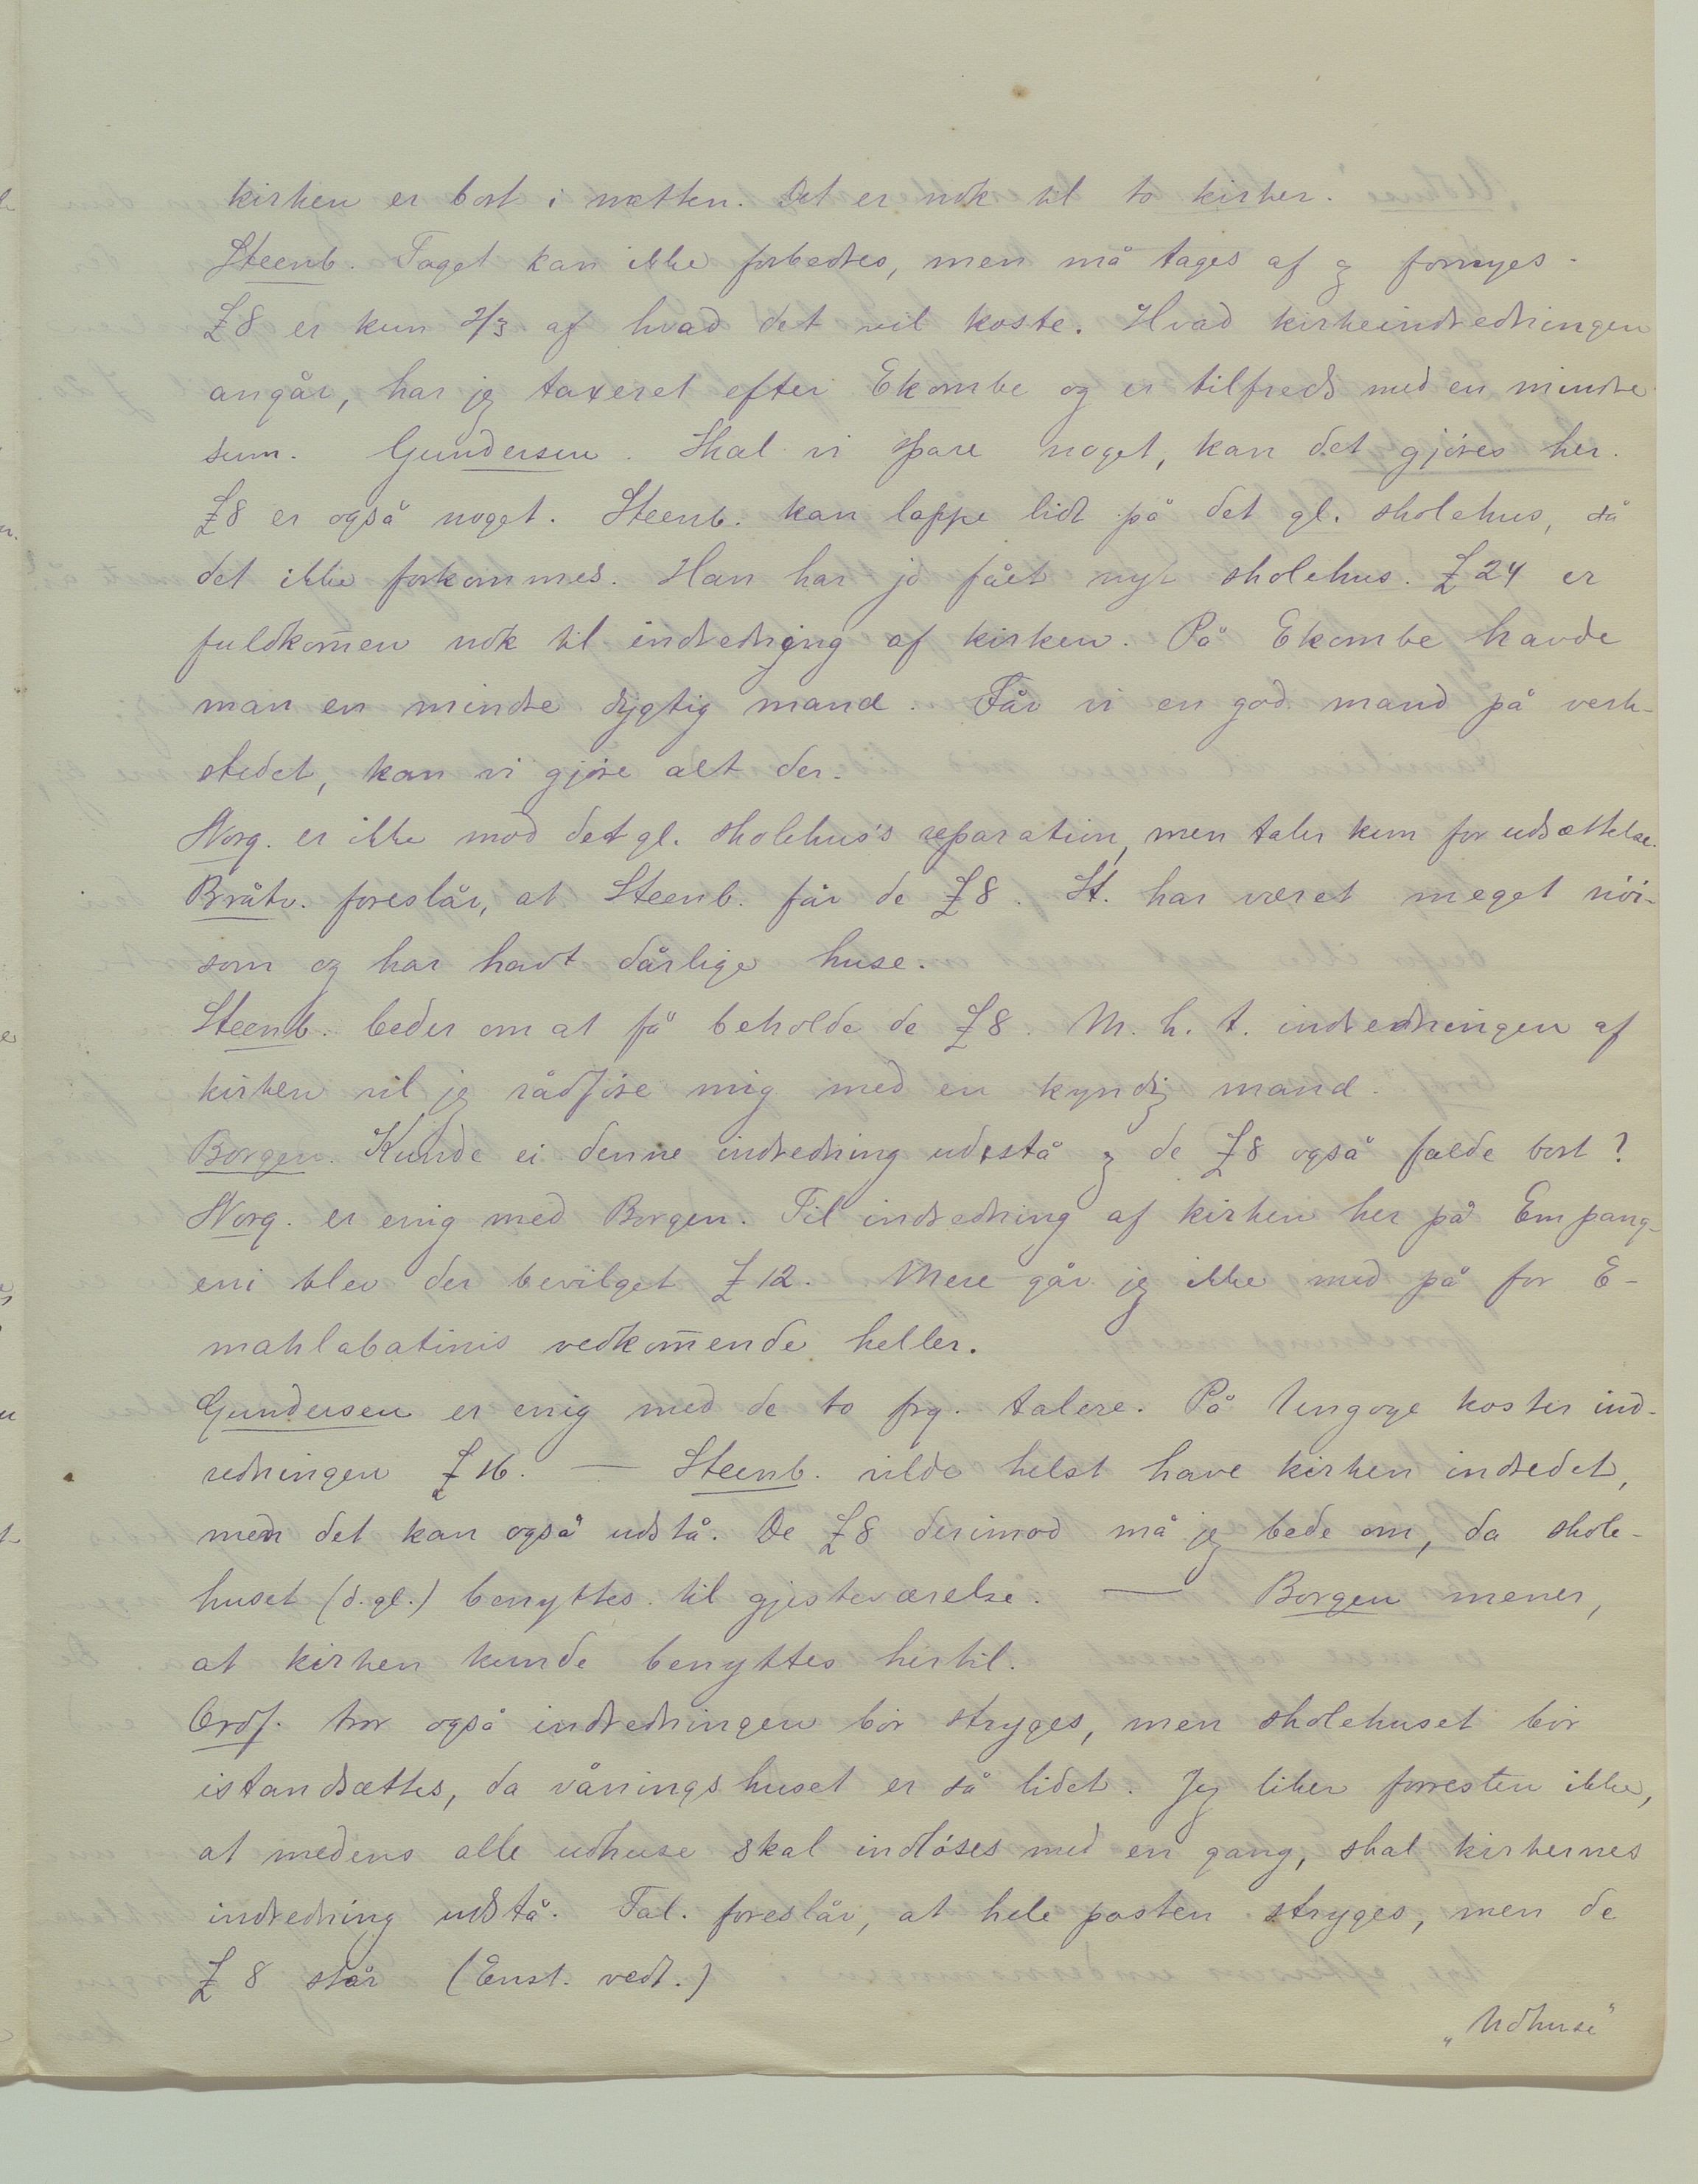 kirken er bort i nætten. Det er nok til to kirker.
Steenb. Taget kan ikke forbedres, men må tages af og fornyes.
£8 er kun 2/3 af hvad det vil koste. Hvad kirkeindredningen
angår, har jeg taxeret efter Ekombe og er tilfreds med en mindre
sum. Gundersen. Skal vi spare noget, kan det gjöres her.
£8 er også noget. Steenb. kan lappe lidt på det gl. skolehus, så
det ikke forkommes. Han har jo fået nyt skolehus. £24 er
fuldkom̄en nok til indredning af kirken. På Ekombe havde
man en mindre dygtig mand. Får vi en god mand på verk-
stedet, kan vi gjöre alt der.
Norg. er ikke mod det gl. skolehus's reparation, men taler kun for udsættelse.
Bråtv. foreslår, at Steenb. får de £8. St. har været meget nöi-
som og har havt dårlige huse.
Steenb. beder om at få beholde de £8. M. h. t. indredningen af
kirken vil jeg rådföre mig med en kyndig mand.
Borgen. Kunde ei denne indredning udstå og de £8 også falde bort?
Norg. er enig med Borgen. Til indredning af kirken her på Empang-
eni blev der bevilget £12. Mere går jeg ikke med på for E-
mahlabatinis vedkom̄ende heller.
Gundersen er enig med de to frg. talere. På Ungoye koster ind-
redningen £16. — Steenb. vilde helst have kirken indredet,
men det kan også udstå. De £8 derimod må jeg bede om, da skole-
huset (d. gl.) benyttes til gjesteværelse. — Borgen mener,
at kirken kunde benyttes hertil.
Ordf. tror også indredningen bör stryges, men skolehuset bör
istandsættes, da våningshuset er så lidet. Jeg liker forresten ikke,
at medens alle udhuse skal indlöses med en gang, skal kirkernes
indredning udstå. Tal. foreslår, at hele posten stryges, men de
£8 står (Enst. vedt.)
„Udhuse"